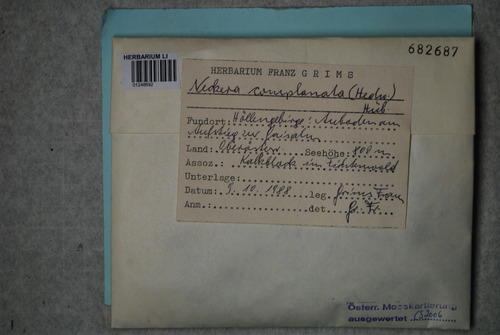 682687
HERBARIUM LI
01248692
HERBARIUM FRANZ GRIMS
Neckera complanata (Hedw.)
Hüb.
Fundort: Höllengebirge:
Aufstieg zur
Land: Oberösterr. Seehöhe: 800 m
Assoz.: Kalkblock im Fichtenwald
Unterlage:
Datum: 9.10.1988 leg. Grims Franz
Anm.: det. Gr. Fr.
Österr. Mooskartierung
ausgewertet 2006